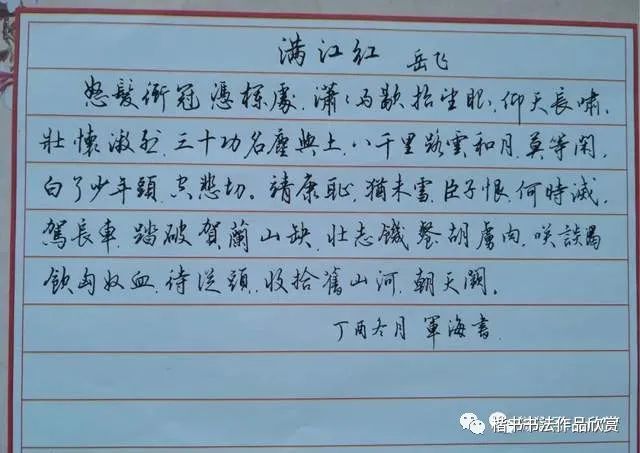 满江红 岳飞
怒髮衝冠憑欄處,瀟〻雨歇抬望眼,仰天長嘯,
壯懷激烈,三十功名塵與土,八千里路雲和月,莫等閑,
白了少年頭,空悲切。靖康恥,猶未雪,臣子恨,何時滅,
駕長車,踏破賀蘭山缺,壮志饑餐胡虜肉,咲談渴
飲匈奴血,待從頭,收拾舊山河,朝天闕。
丁酉冬月 軍海書
楷书书法作品欣赏